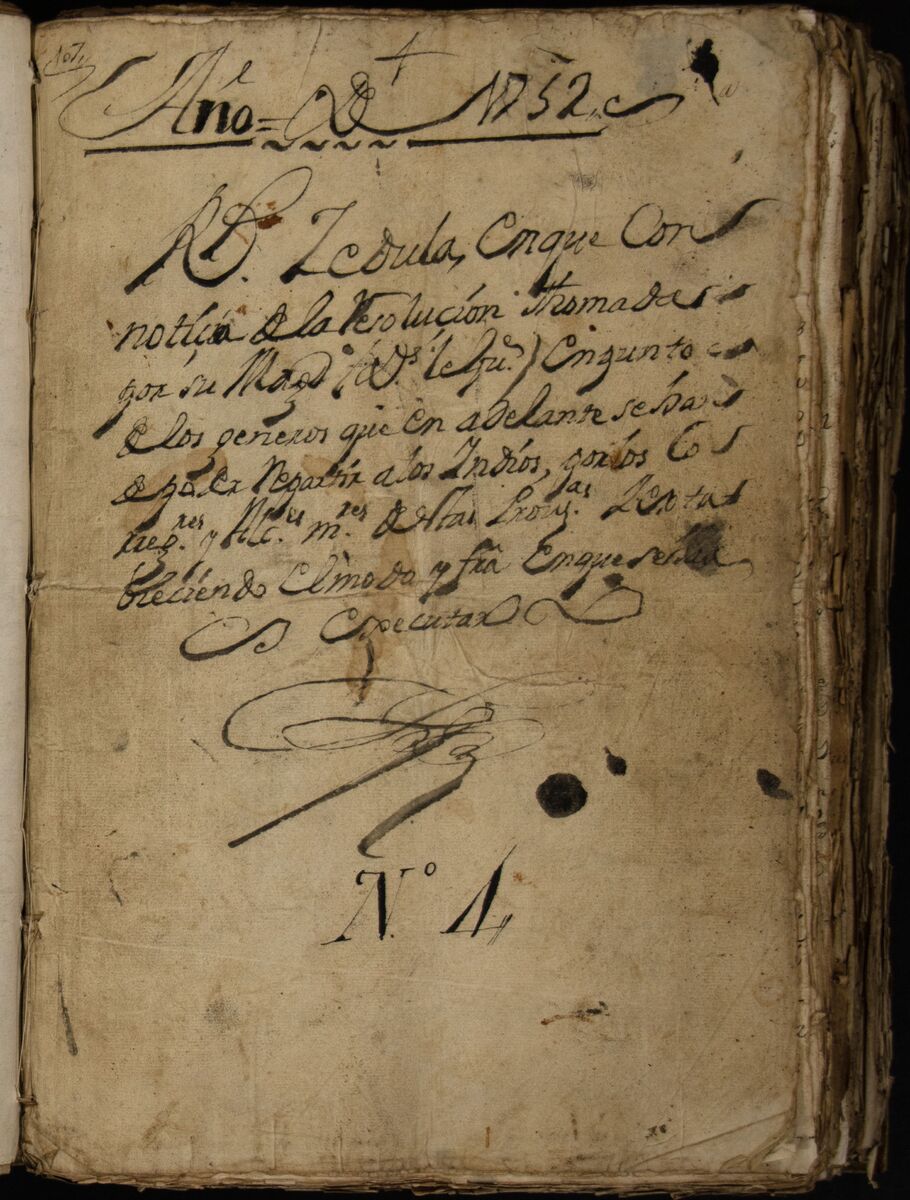 Año de 1752
Rl. Zedula, Enque Con
notiçia de la resoluçion thomada
por su Magd (que Ds. le gue.) Enpunto
de los generos que en adelante se han
de poder Repartir a los Indios, por los Co
rreg.res y Alc.es m.res de estas Prov.as Lexta
bleciendo El modo y fra Enque se ha
Executar
No. 4